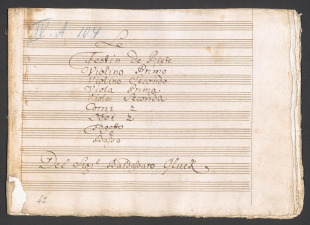 IV. A 104
Le
Festin de Piere
Violino Primo
Violino Secondo
Viola Prima
Viola Seconda
Corni 2
Oboi 2
Fagotto
Basso
Del Sig.r Gluck
42